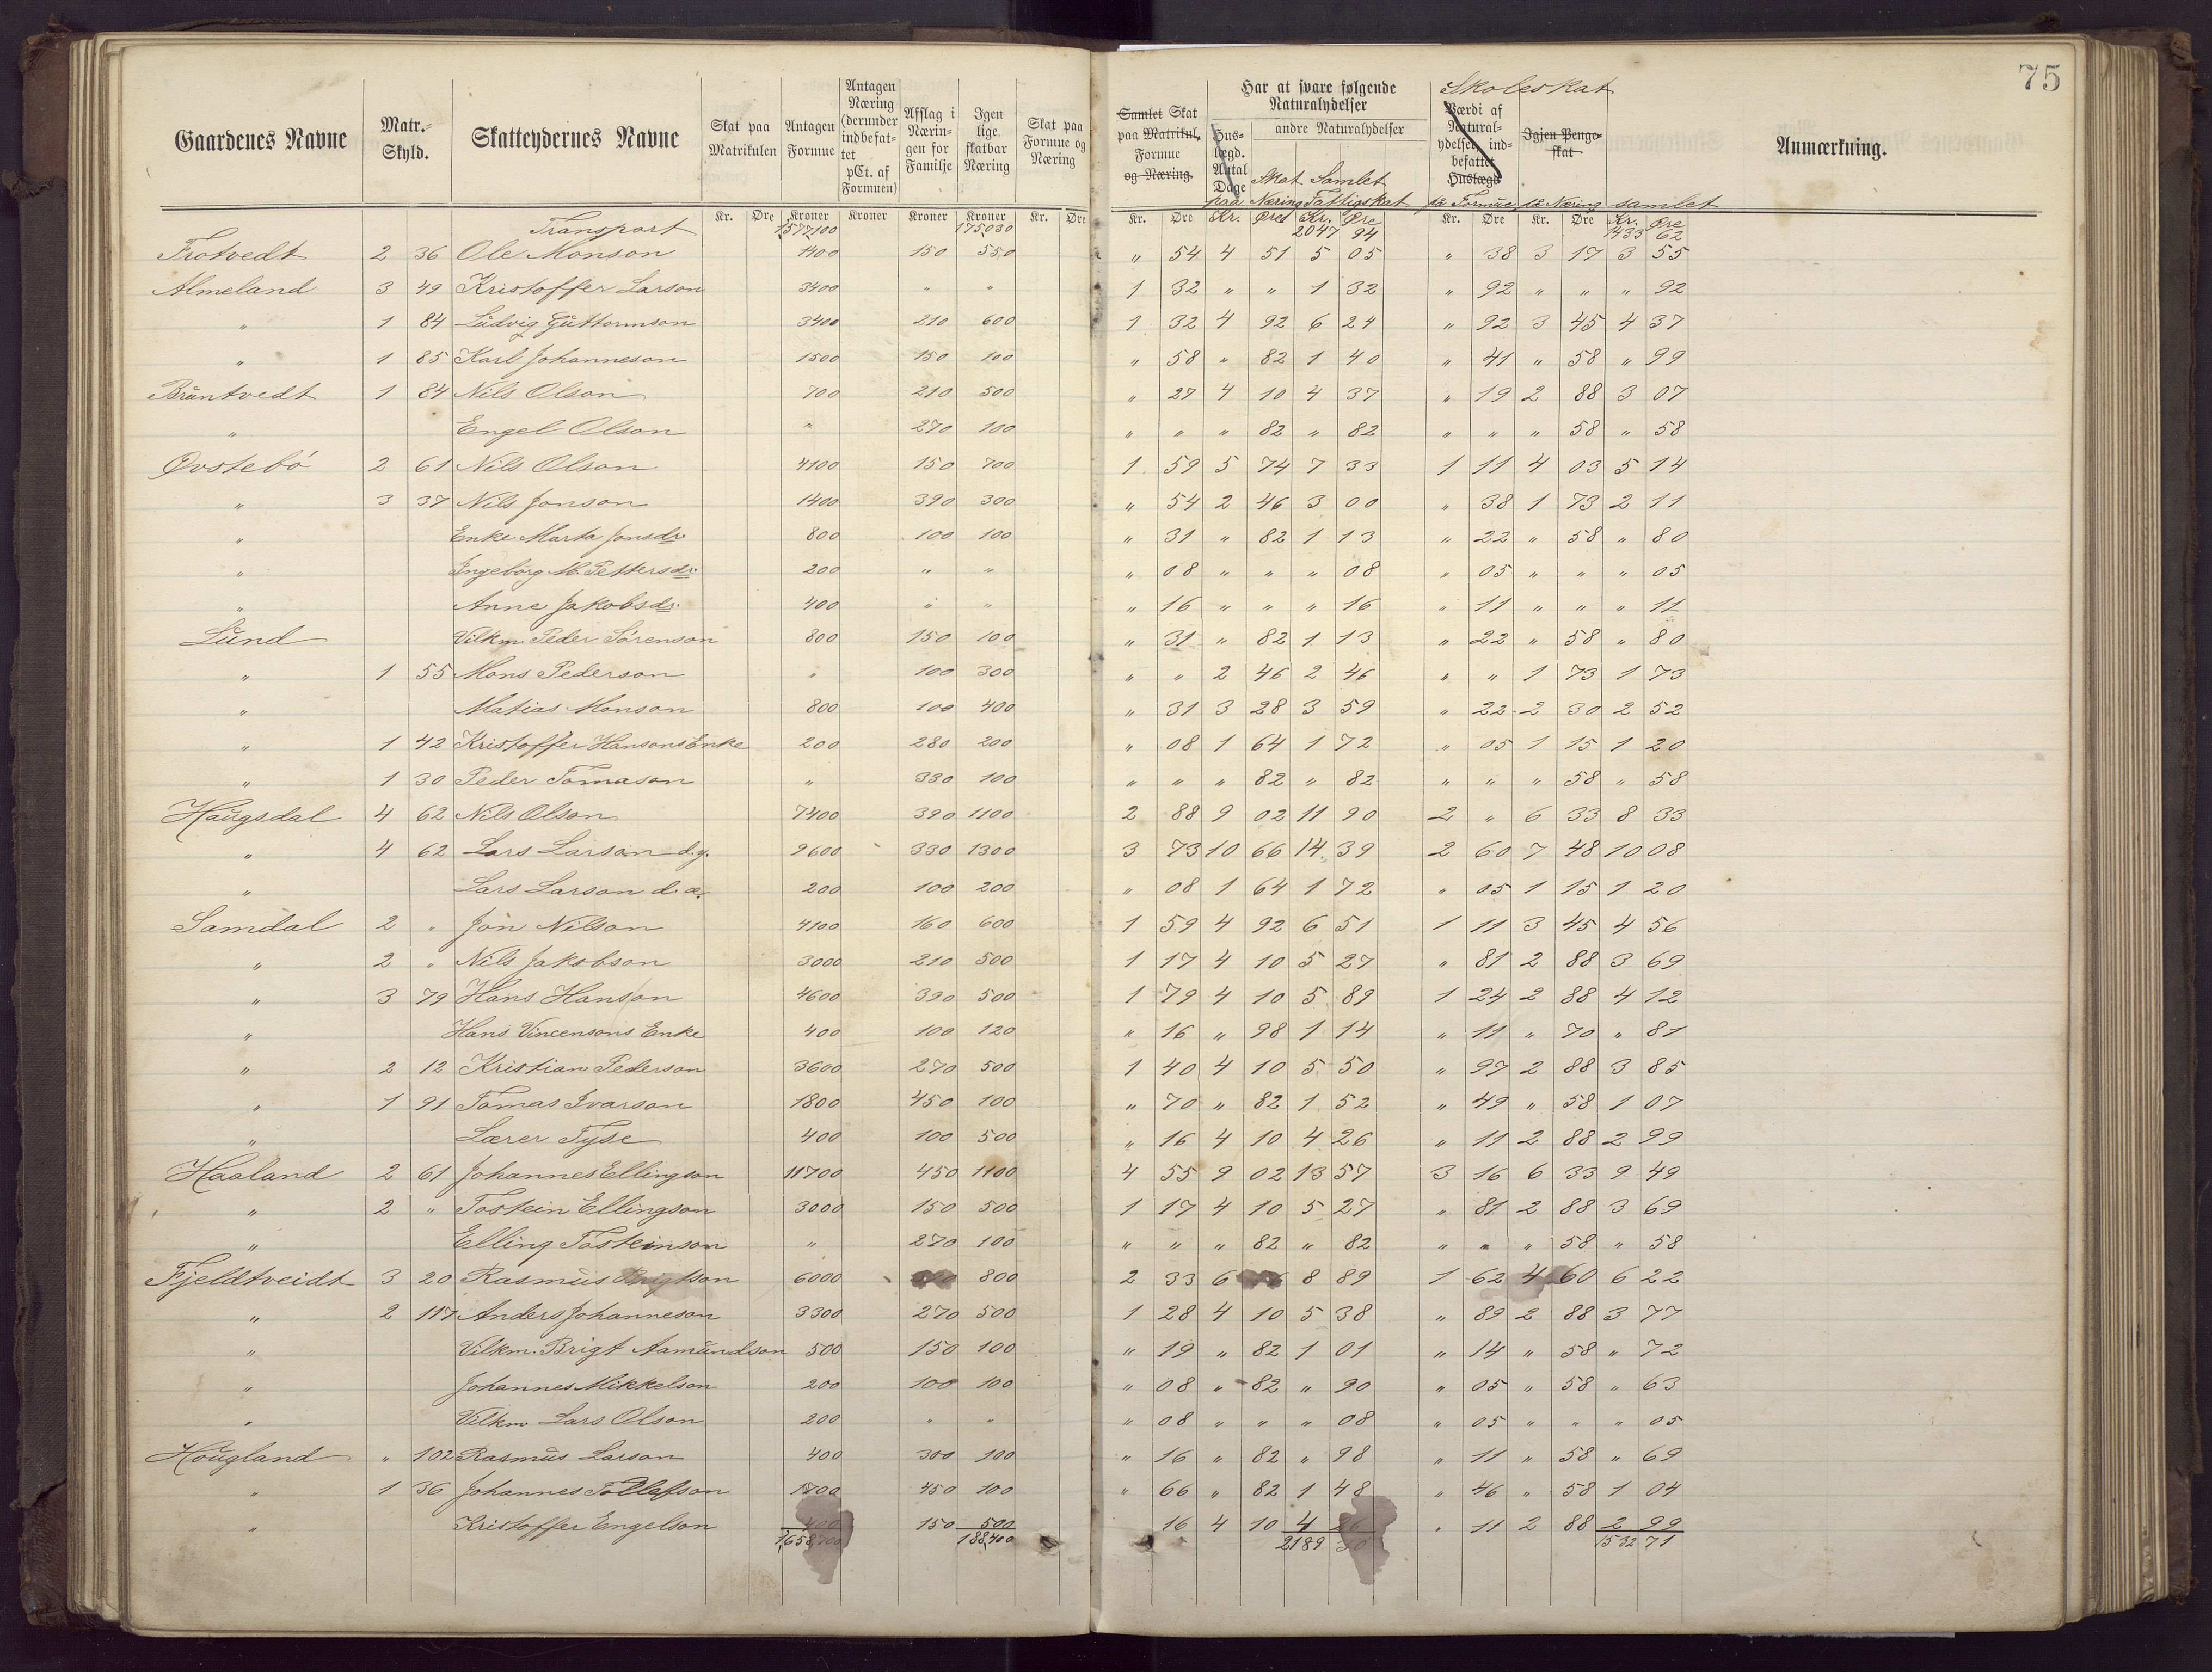 75
Gaardenes Navne | Matr.-Skyld. | Skatteydernes Navne | Skat paa Matrikulen | Antagen Formue | Antagen Næring (derunder indbefattet pCt. af Formuen) | Afslag i Næringen for Familje | Igen lige skatbar Næring | Skat paa Formue og Næring | Samlet Skat paa Matrikul, Formue og Næring. | Har at svare følgende Naturalydelser | Huslægd. Antal Dage | andre Naturalydelser | Skat paa Næring | Samlet Fattigskat | Skoleskat | Værdi af Naturalydelser indbefattet Huslægd | Igjen Pengeskat | på Formue | på Næring | samlet | Anmærkning.
Kr. | Øre | Kroner | Kroner | Kroner | Kroner | Kr. | Øre | Kr. | Øre | Kr. | Øre | Kr. | Øre | Kr. | Øre | Kr. | Øre | Kr. | Øre
Transport | 1577100 | 175030 | 2047 94 | 1433 62
Trotvedt | 2 36 | Ole Monson | 1400 | 150 | 550 | " 54 | 4 51 | 5 05 | " 38 | 3 17 | 3 55
Almeland | 3 49 | Kristoffer Larson | 3400 | " | " | 1 32 | " " | 1 32 | " 92 | " " | " 92
" | 1 84 | Ludvig Guttormson | 3400 | 210 | 600 | 1 32 | 4 92 | 6 24 | " 92 | 3 45 | 4 37
" | 1 85 | Karl Johanneson | 1500 | 150 | 100 | " 58 | " 82 | 1 40 | " 41 | " 58 | " 99
Bruntvedt | 1 84 | Nils Olson | 700 | 210 | 500 | " 27 | 4 10 | 4 37 | " 19 | 2 88 | 3 07
" | Engel Olson | " | 270 | 100 | " " | " 82 | " 82 | " " | " 58 | " 58
Øvstebö | 2 61 | Nils Olson | 4100 | 150 | 700 | 1 59 | 5 74 | 7 33 | 1 11 | 4 03 | 5 14
" | 3 37 | Nils Jonson | 1400 | 390 | 300 | " 54 | 2 46 | 3 00 | " 38 | 1 73 | 2 11
" | Enke Marta Jonsdr. | 800 | 100 | 100 | " 31 | " 82 | 1 13 | " 22 | " 58 | " 80
" | Ingeborg M. Pettersdr. | 200 | " | " | " 08 | " " | " 08 | " 05 | " " | " 05
" | Anne Jakobsdr. | 400 | " | " | " 16 | " " | " 16 | " 11 | " " | " 11
Lund | Vilkm. Peder Sörenson | 800 | 150 | 100 | " 31 | " 82 | 1 13 | " 22 | " 58 | " 80
" | 1 55 | Mons Pederson | " | 100 | 300 | " " | 2 46 | 2 46 | " " | 1 73 | 1 73
" | Matias Monson | 800 | 100 | 400 | " 31 | 3 28 | 3 59 | " 22 | 2 30 | 2 52
" | 1 42 | Kristoffer Hansons Enke | 200 | 280 | 200 | " 08 | 1 64 | 1 72 | " 05 | 1 15 | 1 20
" | 1 30 | Peder Tomason | " | 330 | 100 | " " | " 82 | " 82 | " " | " 58 | " 58
Haugsdal | 4 62 | Nils Olson | 7400 | 390 | 1100 | 2 88 | 9 02 | 11 90 | 2 " | 6 33 | 8 33
" | 4 62 | Lars Larson d.y. | 9600 | 330 | 1300 | 3 73 | 10 66 | 14 39 | 2 60 | 7 48 | 10 08
" | Lars Larson d.æ. | 200 | 100 | 200 | " 08 | 1 64 | 1 72 | " 05 | 1 15 | 1 20
Samdal | 2 " | Jon Nilson | 4100 | 160 | 600 | 1 59 | 4 92 | 6 51 | 1 11 | 3 45 | 4 56
" | 2 " | Nils Jakobson | 3000 | 210 | 500 | 1 17 | 4 10 | 5 27 | " 81 | 2 88 | 3 69
" | 3 79 | Hans Hanson | 4600 | 390 | 500 | 1 79 | 4 10 | 5 89 | 1 24 | 2 88 | 4 12
" | Hans Vincensons Enke | 400 | 100 | 120 | " 16 | " 98 | 1 14 | " 11 | " 70 | " 81
" | 2 12 | Kristian Pederson | 3600 | 270 | 500 | 1 40 | 4 10 | 5 50 | " 97 | 2 88 | 3 85
" | 1 91 | Tomas Ivarson | 1800 | 450 | 100 | " 70 | " 82 | 1 52 | " 49 | " 58 | 1 07
" | Lærer Tyse | 400 | 100 | 500 | " 16 | 4 10 | 4 26 | " 11 | 2 88 | 2 99
Haaland | 2 61 | Johannes Ellingson | 11700 | 450 | 1100 | 4 55 | 9 02 | 13 57 | 3 16 | 6 33 | 9 49
" | 2 " | Tostein Ellingson | 3000 | 150 | 500 | 1 17 | 4 10 | 5 27 | " 81 | 2 88 | 3 69
" | Elling Tosteinson | " | 270 | 100 | " " | " 82 | " 82 | " " | " 58 | " 58
Fjeldtveidt | 3 20 | Rasmus Brigtson | 6000 | 800 | 2 33 | 6 | 8 89 | 1 62 | 4 60 | 6 22
" | 2 117 | Anders Johanneson | 3300 | 270 | 500 | 1 28 | 4 10 | 5 38 | " 89 | 2 88 | 3 77
" | Vilkm. Brigt Aamundson | 500 | 150 | 100 | " 19 | " 82 | 1 01 | " 14 | " 58 | " 72
" | Johannes Mikkelson | 200 | 100 | 100 | " 08 | " 82 | " 90 | " 05 | " 58 | " 63
" | Vilkm Lars Olson | 200 | " | " | " 08 | " " | " 08 | " 05 | " " | " 05
Hougland | " 102 | Rasmus Larson | 400 | 300 | 100 | " 16 | " 82 | " 98 | " 11 | " 58 | " 69
" | 1 36 | Johannes Tollefson | 1700 | 450 | 100 | " 66 | " 82 | 1 48 | " 46 | " 58 | 1 04
" | Kristoffer Engelson | 400 | 150 | 500 | 16 | 4 10 | 4 26 | " 11 | 2 88 | 2 99
1658700 | 188400 | 2189 30 | 1532 71